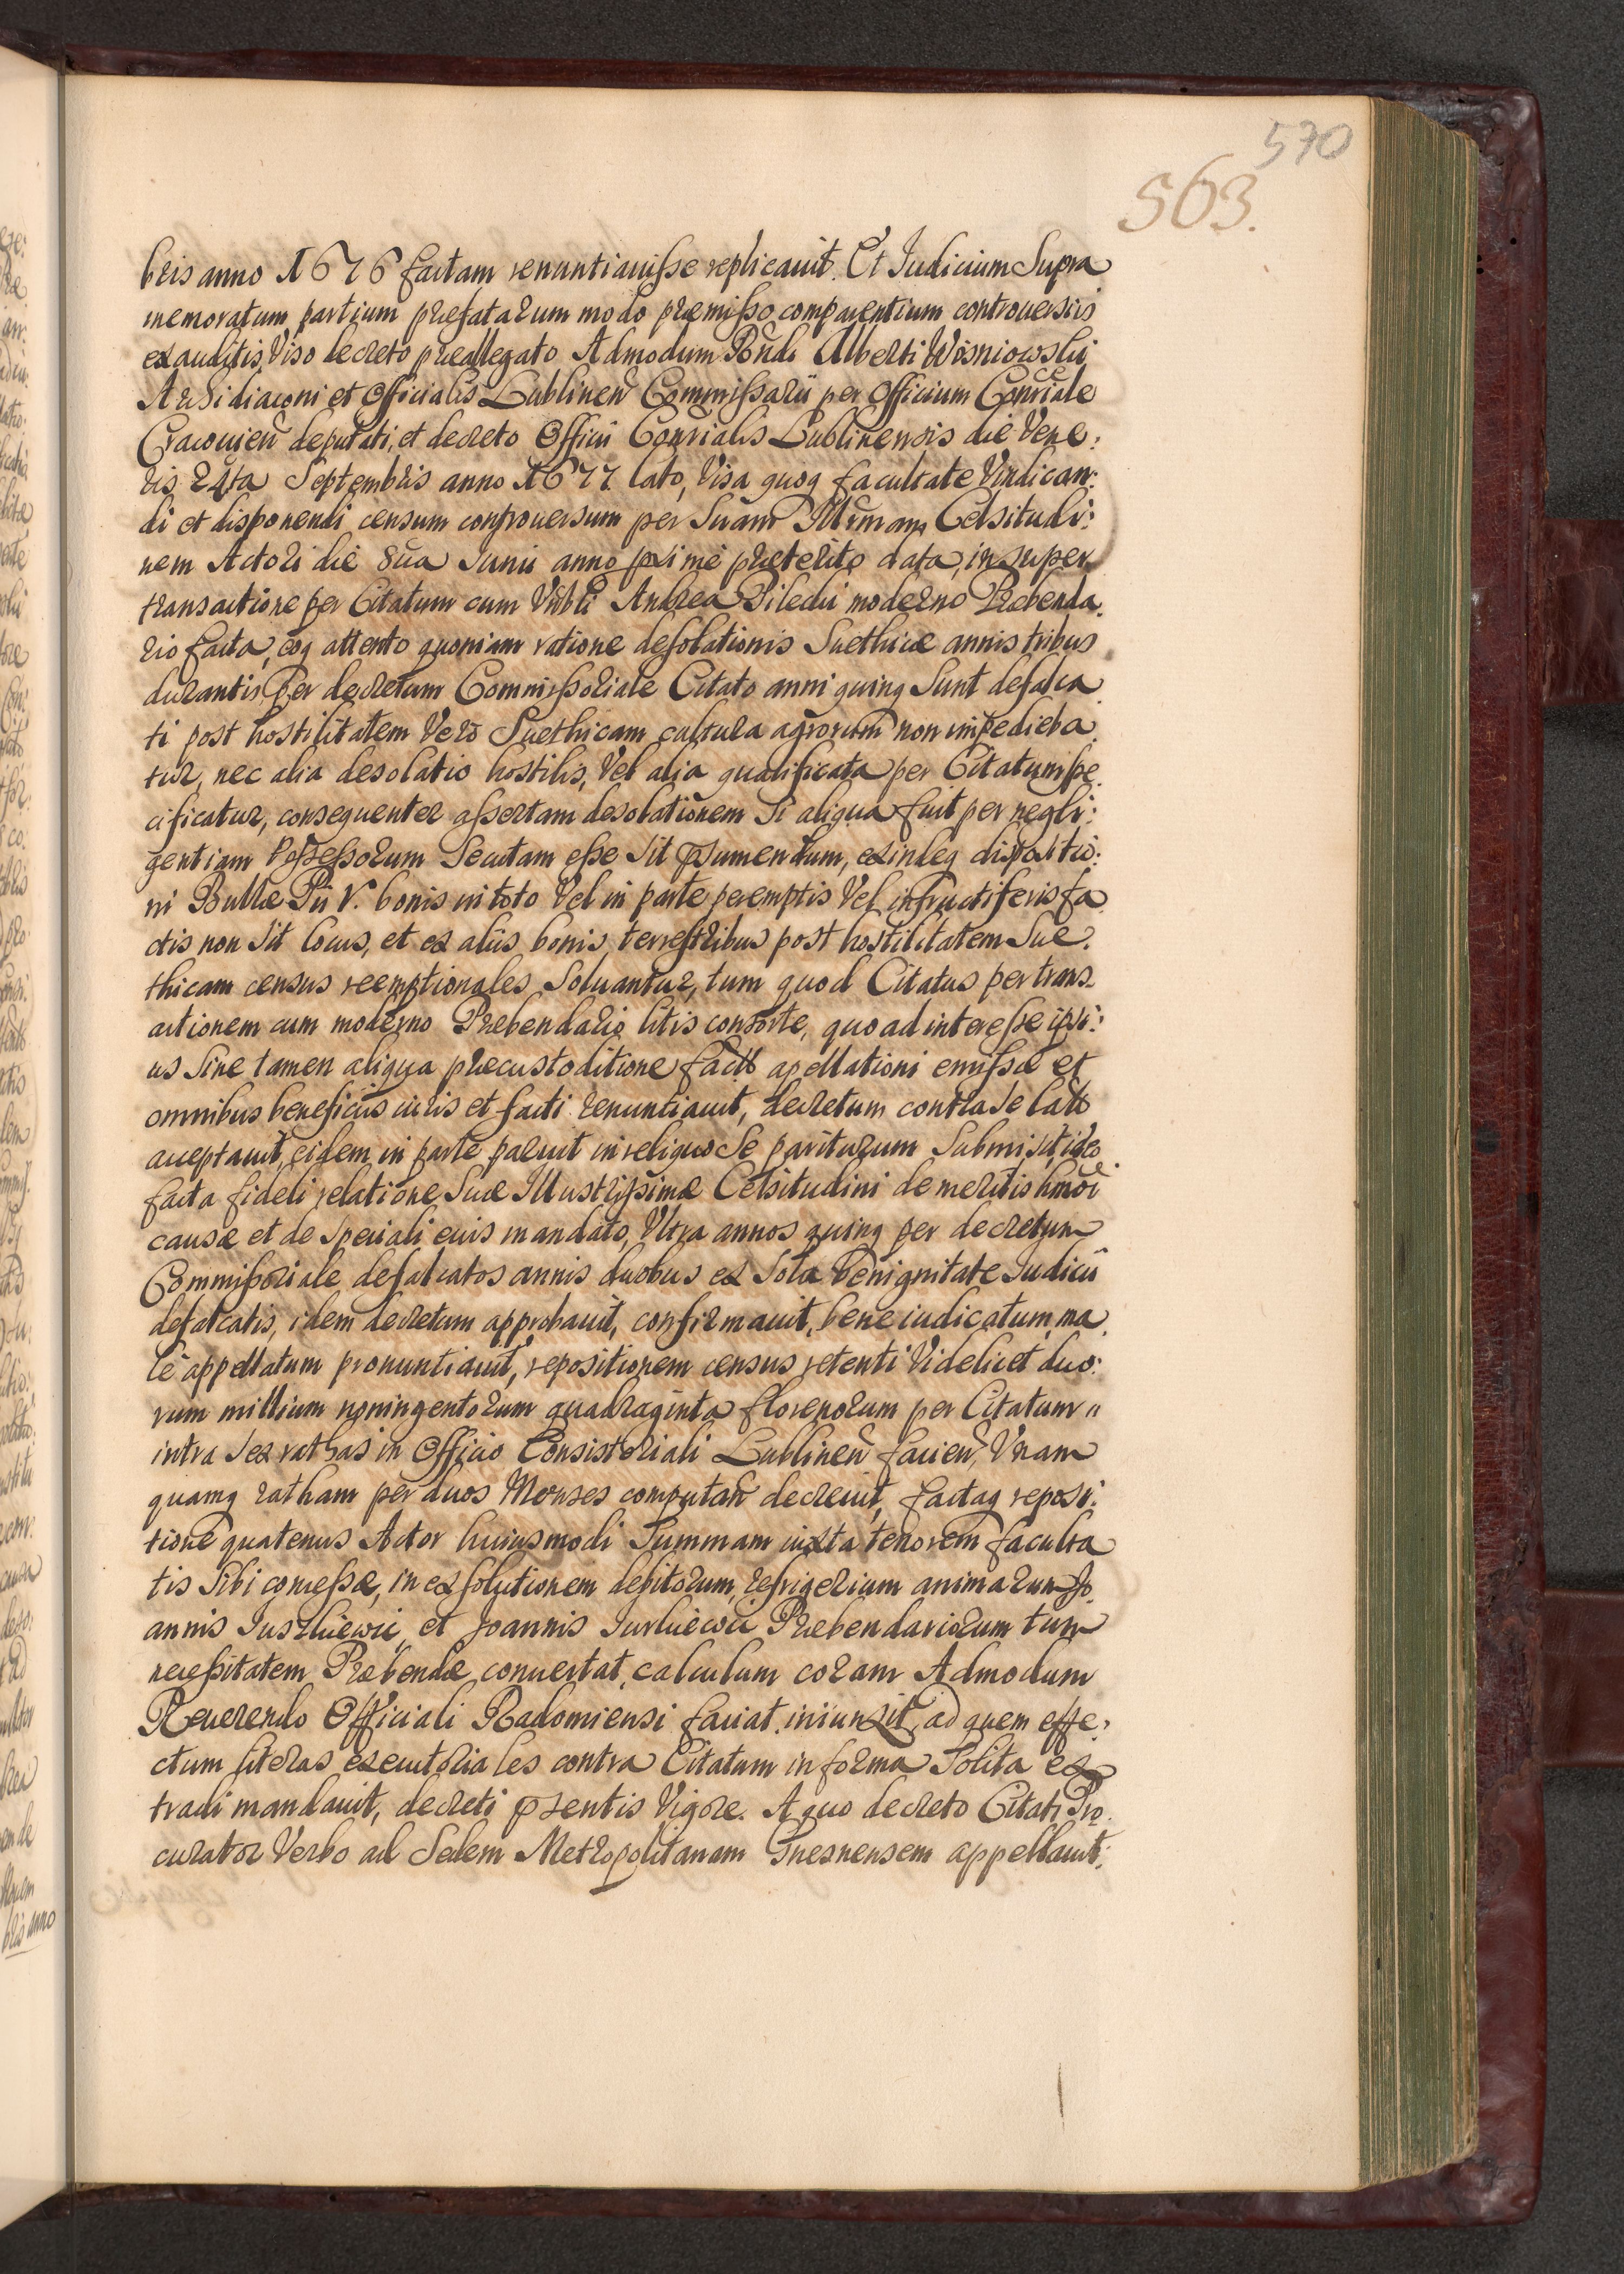 570
563.
bris anno 1676 factam renuntiauisse replicauit. Et Iudicium Supra
memoratum partium præfatarum modo præmisso comparentium controuersiis
exauditis, Viso decreto præallegato Admodum Rñdi Alberti Wisniowski
Archidiaconi et Officialis Lublineñ Commissarii per Officium
Cracouieñ deputati, et decreto Officii Lublinensis die Vene:
ris 24ta Septembris anno 1677 lato, Visa quoq facultate Vindican:
di et disponendi censum controuersum per Suam Illrmam Celsitudi:
nem Actori die 8ua Iunii anno præterito data, insuper
transactione per Citatum cum Andrea moderno Præbenda:
rio facta, eoq attento quoniam ratione desolationis Suethicæ annis tribus
durantis, Per decretum Commissoriale Citato anni quinq Sunt defalca
ti post hostilitatem Vero Suethicam cultura agrorum non impedieba
tur, nec alia desolatio hostilis, Vel alia qualificata per Citatum spe
cificatur, consequenter assertam desolationem Si aliqua fuit per negli:
gentiam Possessorum Secutam esse Sit psumendum, exindeq dispositio:
ni Bullæ Pii V. bonis in toto Vel in parte peremptis Vel infructiferis fa
ctis non Sit locus, et ex aliis bonis terrestribus post hostilitatem Sue:
thicam census reemptionales Soluantur, tum quod Citatus per trans
actionem cum moderno Præbendario litis consorte, quo ad interesse ipsi:
us Sine tamen aliqua præcustoditione facta apellationi emissæ et
omnibus beneficiis iuris et facti renuntiauit, decretum contra Se latũ
acceptauit, eidem in parte paruit in reliquo Se pariturum Submisit, ideo
facta fideli relatione Suæ Illustrissimæ Celsitudini de meritis hmoi
causæ et de Speciali eius mandato, Vltra annos quinq per decretum
Commissoriale defalcatos annis duobus ex Sola benignitate Iudicii
defalcatis, idem decretum approbauit, confirmauit, bene iudicatum, ma
le appellatum pronuntiauit, repositionem census retenti Videlicet duo:
rum millium noningentorum quadraginta florenorum per Citatum
intra Sex rathas in Officio Consistoriali Lublineñ facieñ, Vnam
quamq ratham per duos Menses computañ decreuit, factaq reposi:
tione quatenus Actor huiusmodi Summam iuxta tenorem faculta
tis Sibi concessæ, in exsolutionem debitorum, refrigerium animarum Jo
annis et Joannis Præbendariorum tum
necessitatem Præbendæ conuertat, calculum coram Admodum
Reuerendo Officiali Radomiensi faciat, iniunxit, ad quem effe:
ctum literas executoriales contra Citatum in forma Solita ex
tradi mandauit, decreti psentis Vigore. A quo decreto Citati Pro
curator Verbo ad Sedem Metropolitanam Gnesnensem appellauit: